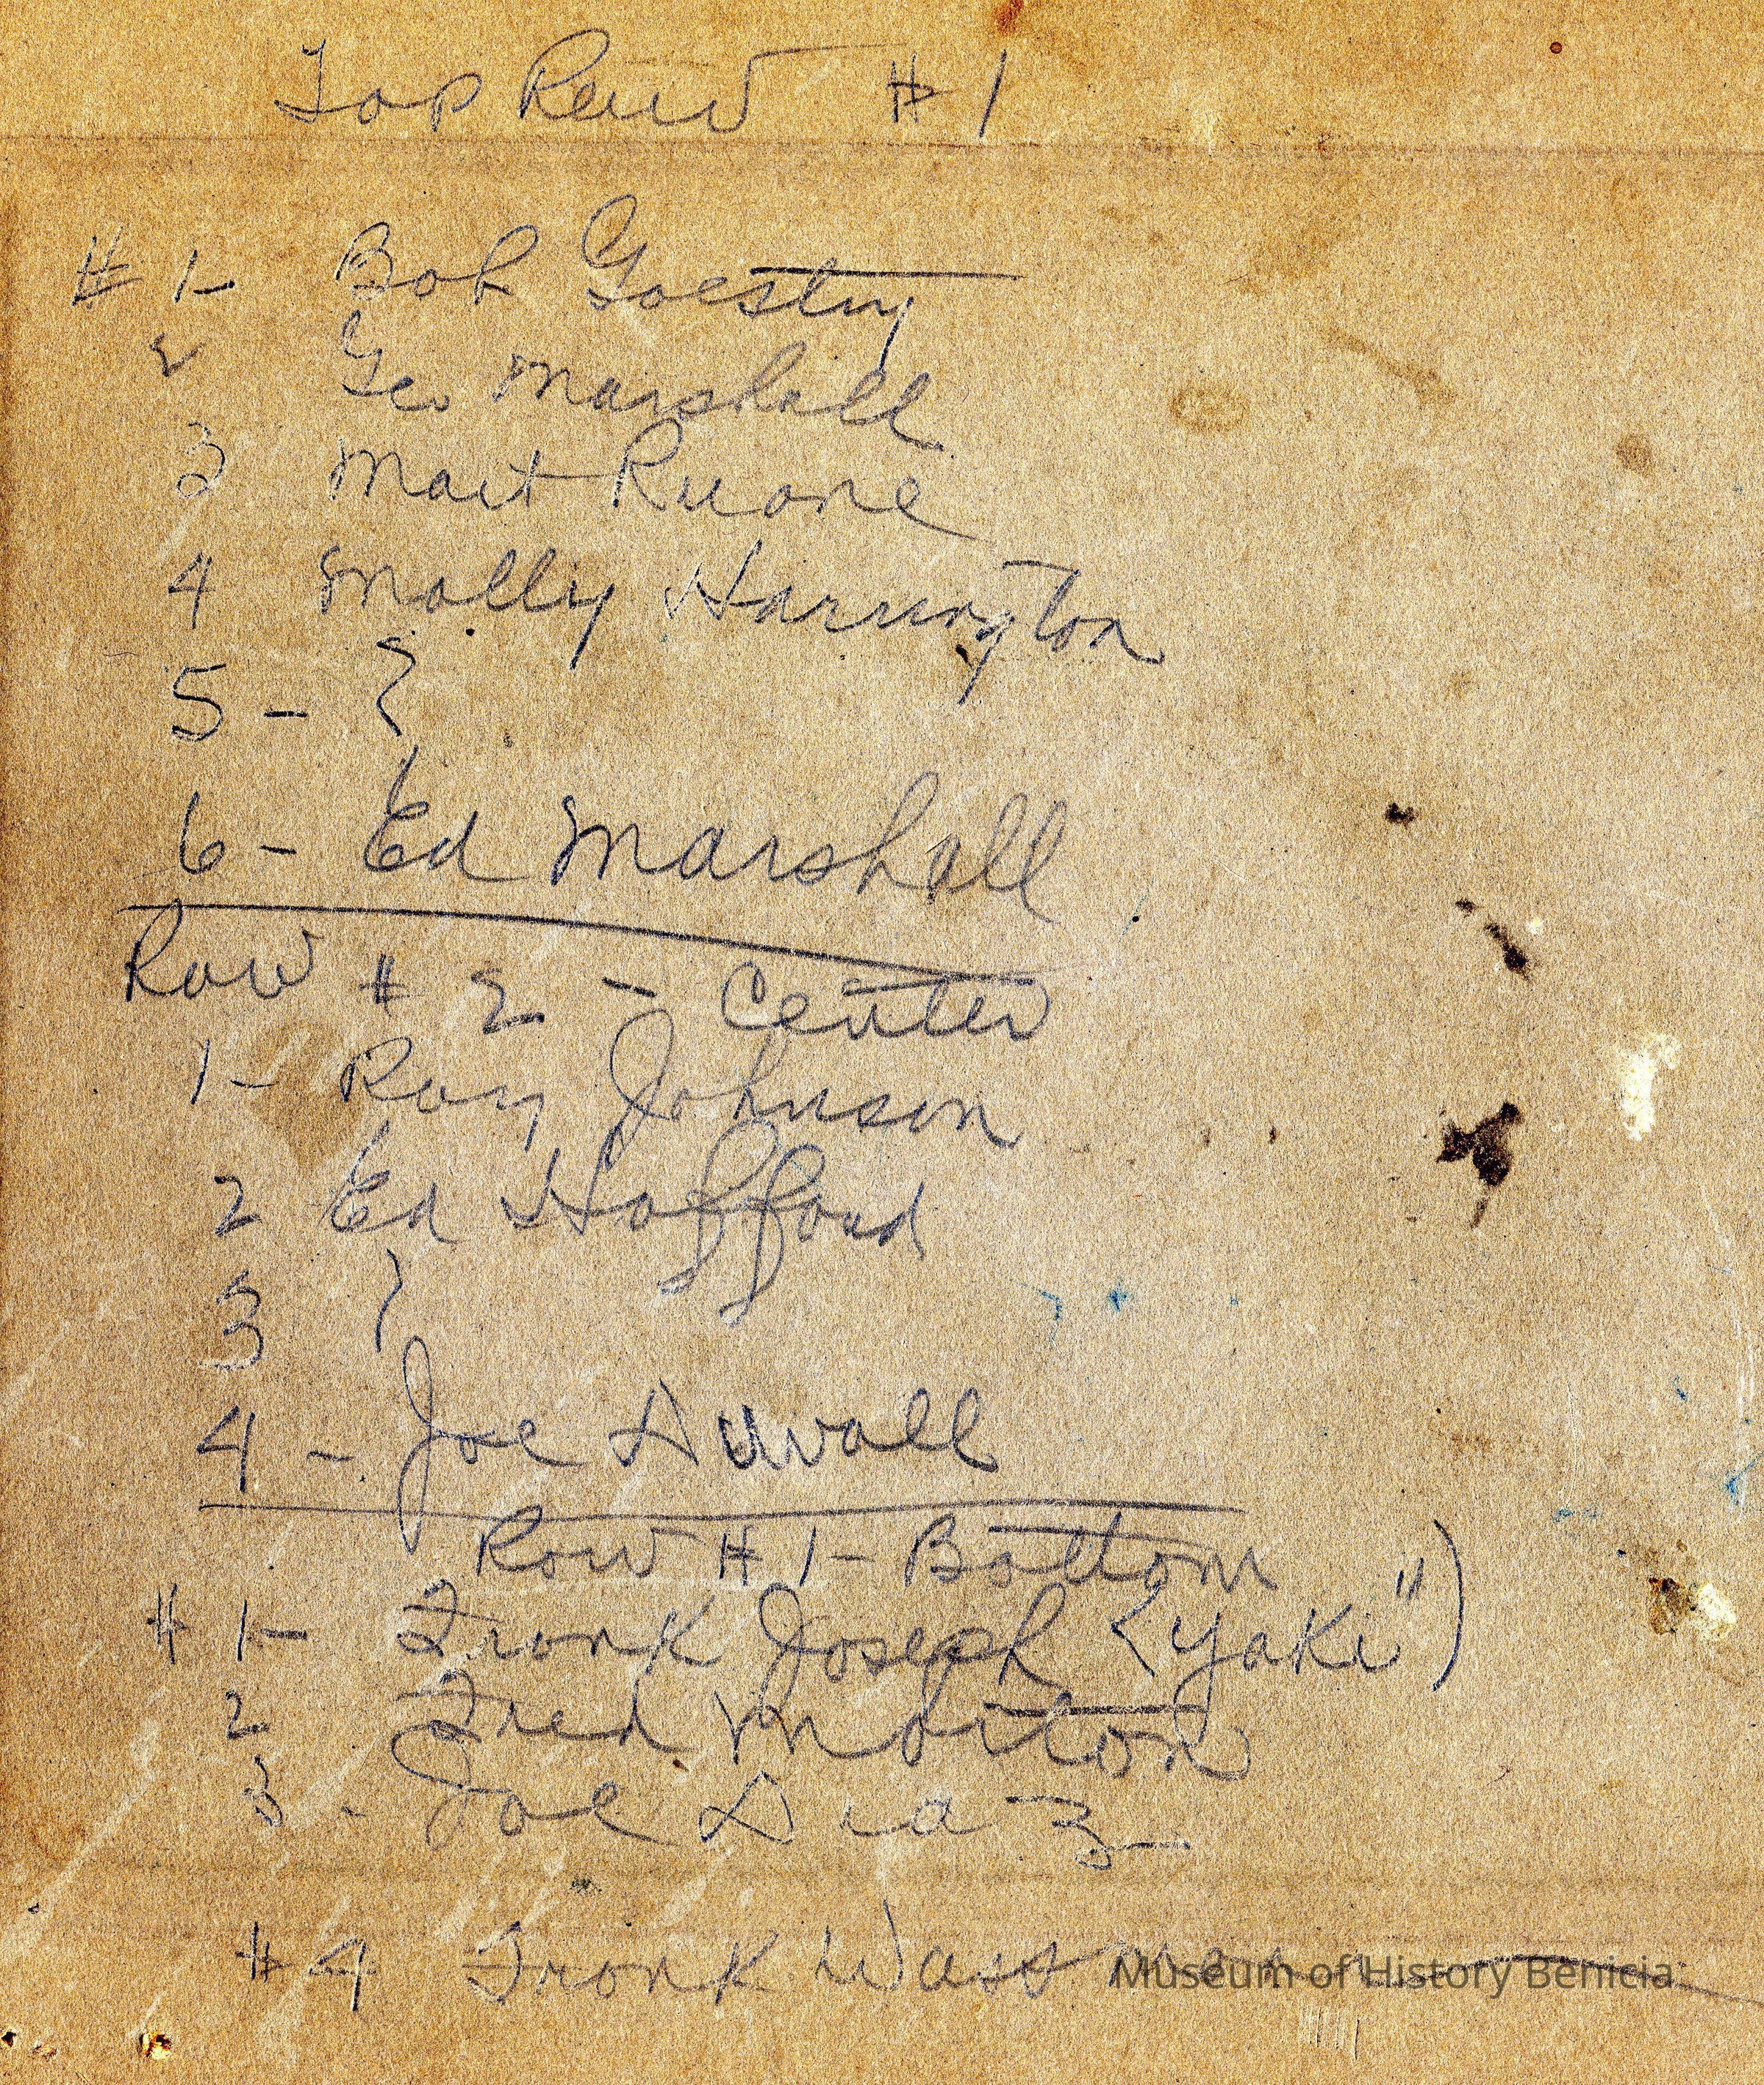 Top Row #1
# 1- Bob Goesty
2 Geo Marshall
3 Mart Ruane
4 Molly Harrington
5 - {
6 - Ed Marshall
Row # 2 - Center
1- Ray Johnson
2 Ed Hafford
3 )
4 - Joe Duvall
Row # 1 - Bottom
# 1- Frank Joseph (Yaki")
2 Fred Morton
3 - Joe Diaz
#4 Frank
Museum of History Benicia